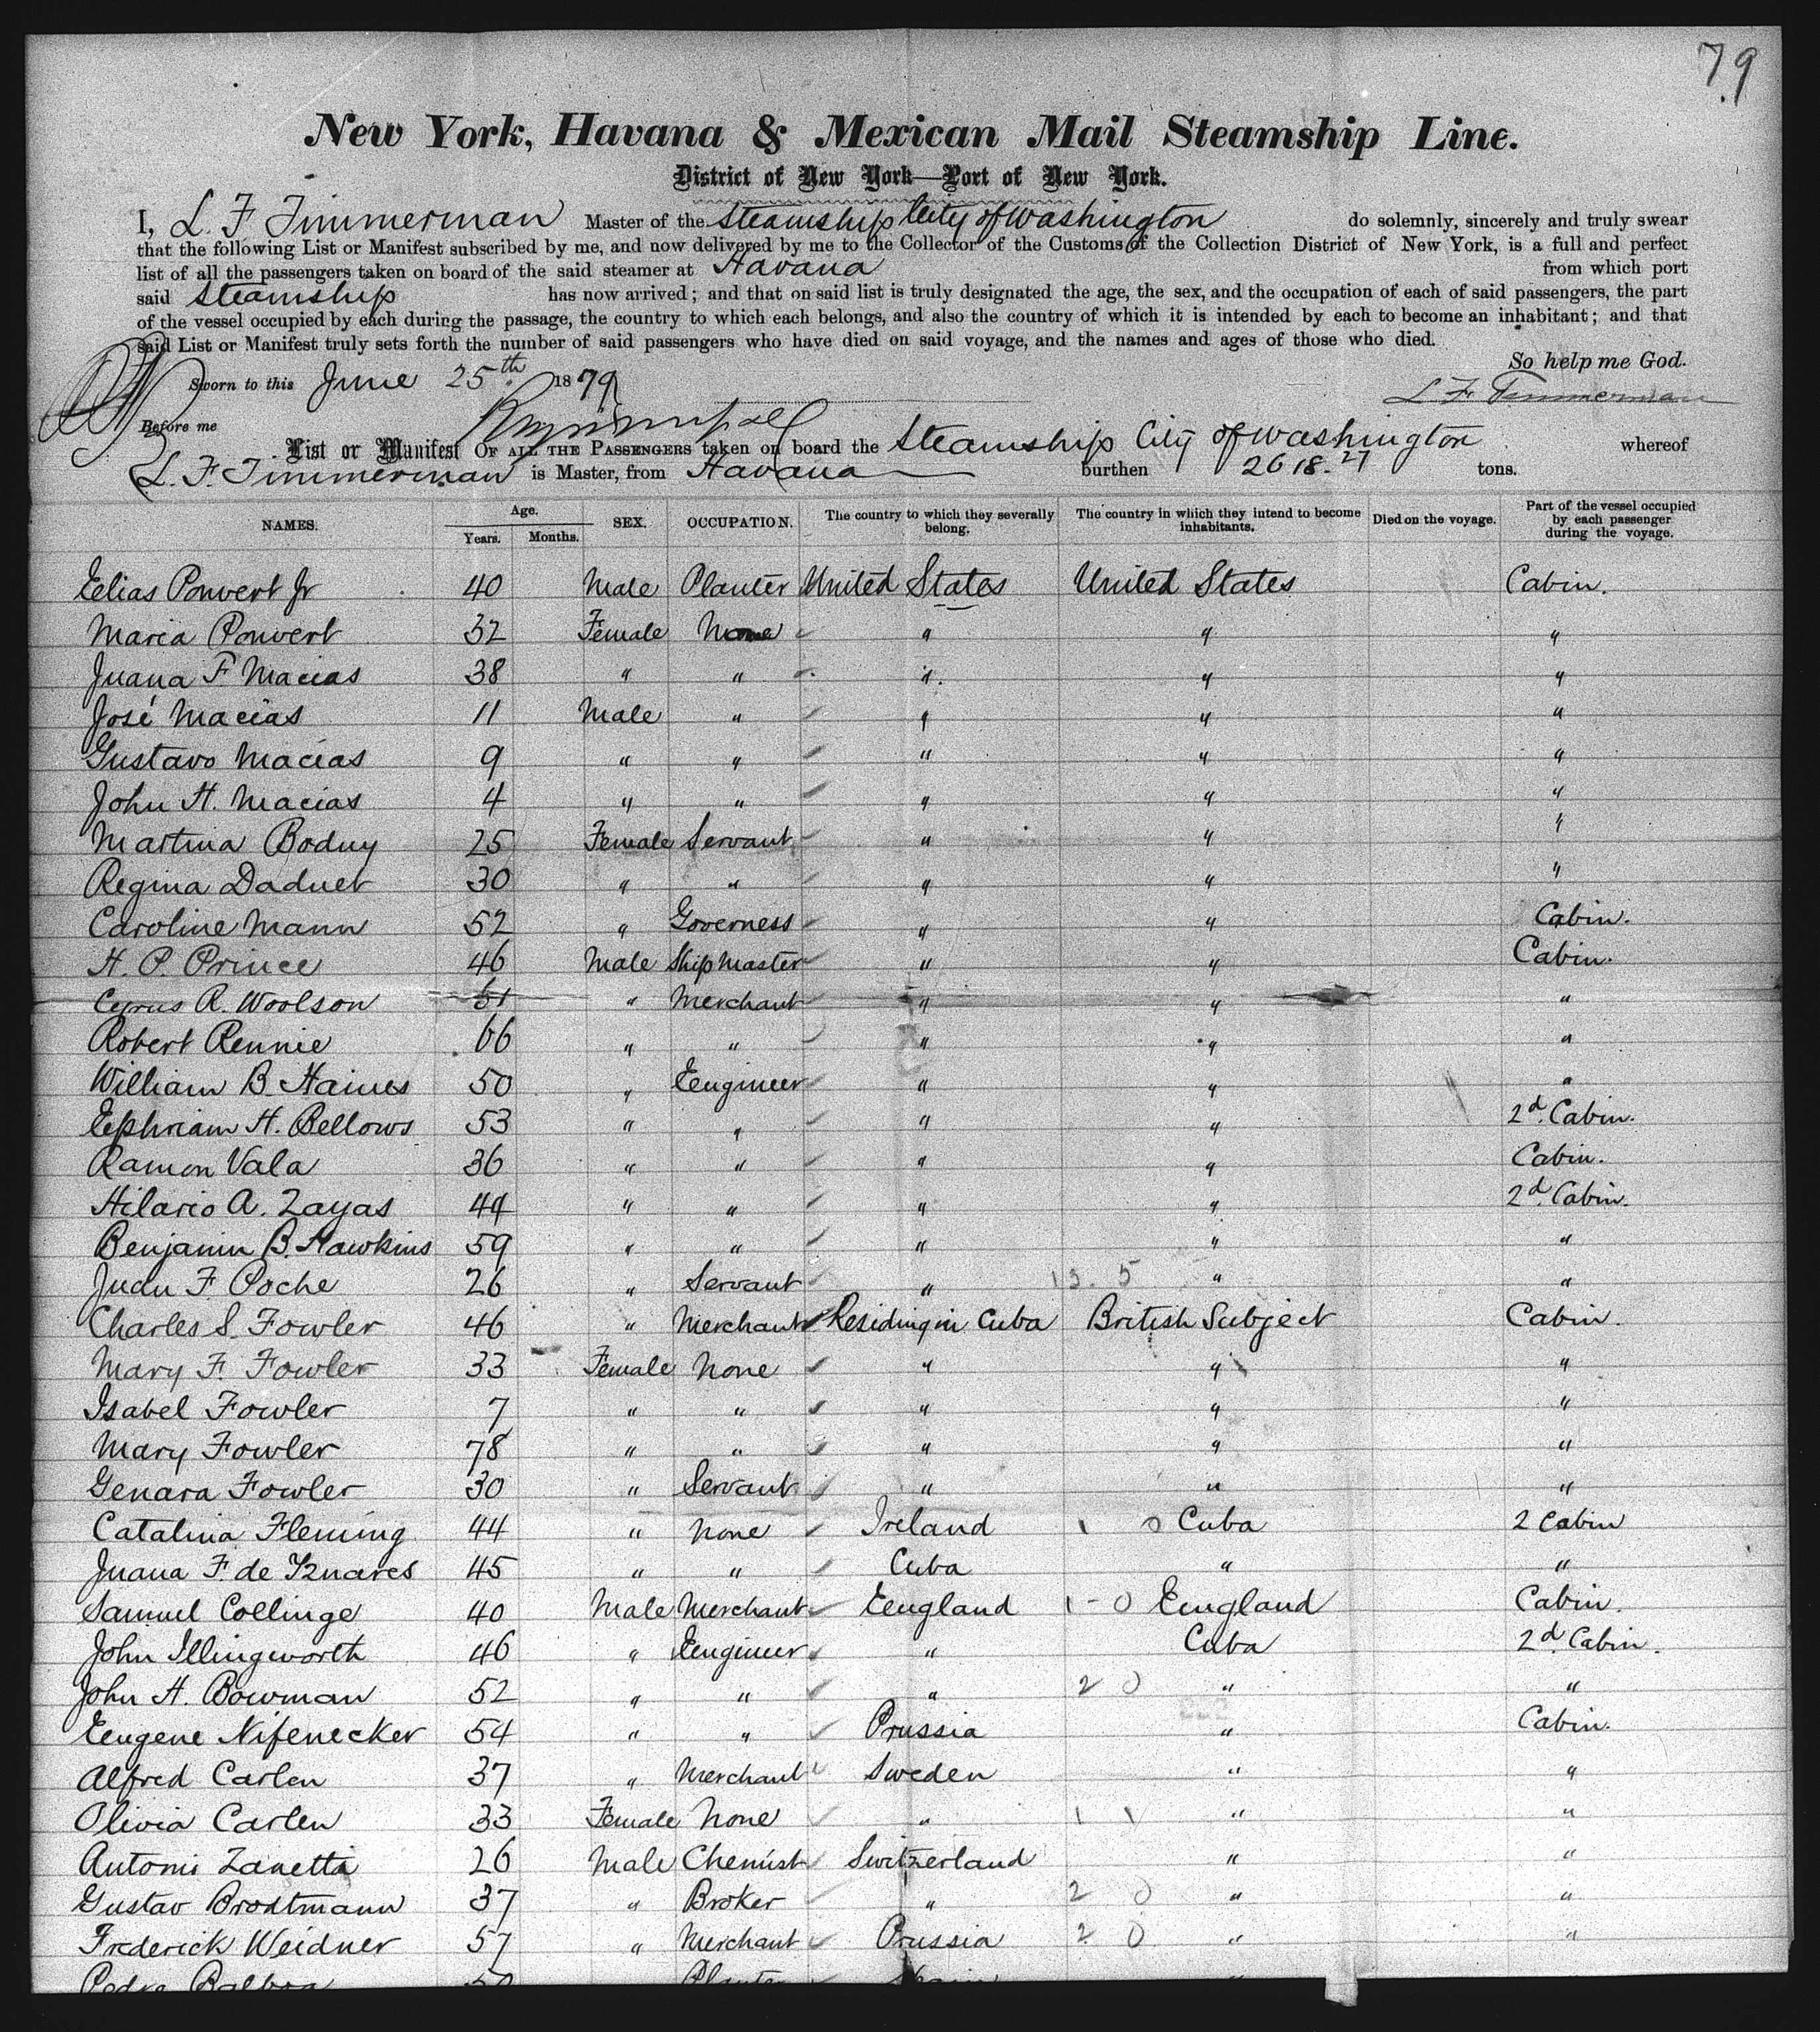 79
New York, Havana & Mexican Mail Steamship Line.
District of New York—Port of New York.
I, L. F Timmerman Master of the Steamship City of Washington do solemnly, sincerely and truly swear
that the following List or Manifest subscribed by me, and now delivered by me to the Collector of the Customs of the Collection District of New York, is a full and perfect
list of all the passengers taken on board of the said steamer at Havana from which port
said Steamship has now arrived; and that on said list is truly designated the age, the sex, and the occupation of each of said passengers, the part
of the vessel occupied by each during the passage, the country to which each belongs, and also the country of which it is intended by each to become an inhabitant; and that
said List or Manifest truly sets forth the number of said passengers who have died on said voyage, and the names and ages of those who died.
So help me God.
Sworn to this June 25th 1879
L F Timmerman
Before me
List or Manifest OF ALL THE PASSENGERS taken on board the Steamship City of Washington whereof
L. F. Timmerman is Master, from Havana burthen 2618.27 tons.
NAMES. Age. Years. Months. SEX. OCCUPATION. The country to which they severally belong. The country in which they intend to become inhabitants. Died on the voyage. Part of the vessel occupied by each passenger during the voyage.
Elias Ponvert Jr 40 Male Planter United States United States Cabin.
Maria Ponvert 32 Female None " " "
Juana F Macias 38 " " " " "
José Macias 11 Male " " " "
Gustavo Macias 9 " " " " "
John H. Macias 4 " " " " "
Martina Boduy 25 Female Servant " " "
Regina Daduet 30 " " " " "
Caroline Mann 52 " Governess " " Cabin.
H. P. Prince 46 Male Ship Master " " Cabin.
Cyrus R. Woolson 51 " Merchant " " "
Robert Rennie 66 " " " " "
William B. Haines 50 " Engineer " " "
Ephriam H. Bellows 53 " " " " 2d Cabin.
Ramon Vala 36 " " " " Cabin.
Hilario A. Zayas 44 " " " " 2d Cabin.
Benjamin B. Hawkins 59 " " " " "
Juan F. Poche 26 " Servant " 13. 5 " "
Charles S. Fowler 46 " Merchant Residing in Cuba British Subject Cabin.
Mary F. Fowler 33 Female None " " "
Isabel Fowler 7 " " " " "
Mary Fowler 78 " " " " "
Genara Fowler 30 " Servant " " "
Catalina Fleming 44 " None Ireland 1 0 Cuba 2 Cabin
Juana F. de Yznares 45 " " Cuba " "
Samuel Collinge 40 Male Merchant England 1-0 England Cabin.
John Illingworth 46 " Engineer " Cuba 2d Cabin.
John H. Bowman 52 " " " 2 0 " "
Eugene Nifenecker 54 " " Prussia " Cabin.
Alfred Carlen 37 " Merchant Sweden " "
Olivia Carlen 33 Female None " 1 1 " "
Antoni Zanetta 26 Male Chemist Switzerland " "
Gustav Brodtmann 37 " Broker " 2 0 " "
Frederick Weidner 57 " Merchant Prussia 2 0 " "
Pedro Balboa 50 Planter Spain "